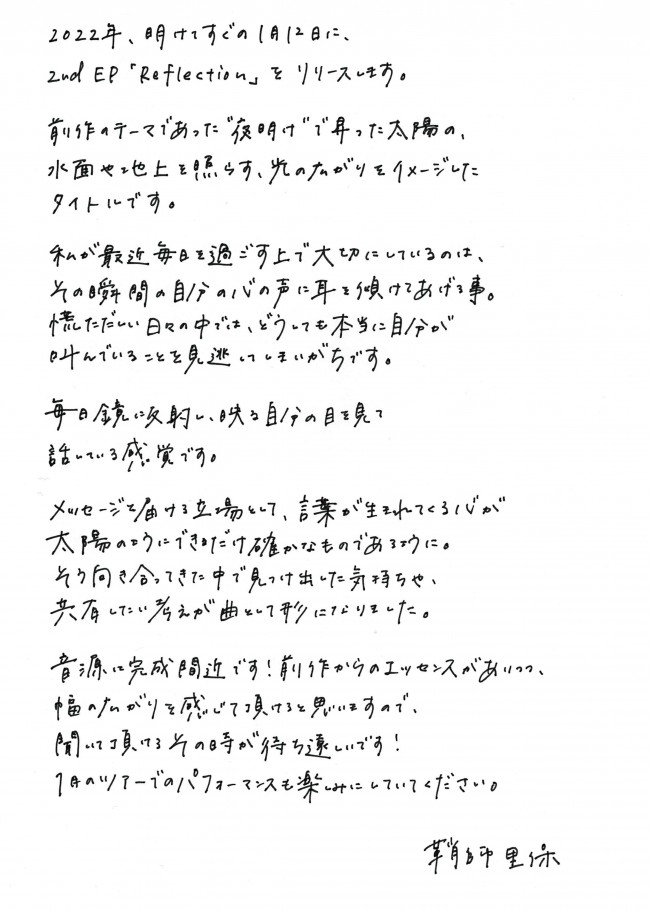 2022年、明けてすぐの1月12日に、
2nd EP「Reflection」をリリースします。
前作のテーマであった"夜明け"で昇った太陽の、
水面や地上を照らす、光の広がりをイメージした
タイトルです。
私が最近毎日を過ごす上で大切にしているのは、
その瞬間の自分の心の声に耳を傾けてあげる事。
慌ただしい日々の中では、どうしても本当に自分が
叫んでいることを見逃してしまいがちです。
毎日鏡に反射し、映る自分の目を見て
話している感覚です。
メッセージを届ける立場として、言葉が生まれてくる心が
太陽のようにできるだけ確かなものであるように。
そう向き合ってきた中で見つけ出した気持ちや、
共有したい考えが曲として形になりました。
音源は完成間近です!前作からのエッセンスがありつつ、
幅の広がりを感じて頂けると思いますので、
聞いて頂けるその時が待ち遠しいです!
1月のツアーでのパフォーマンスも楽しみにしていてください。
鞘師里保